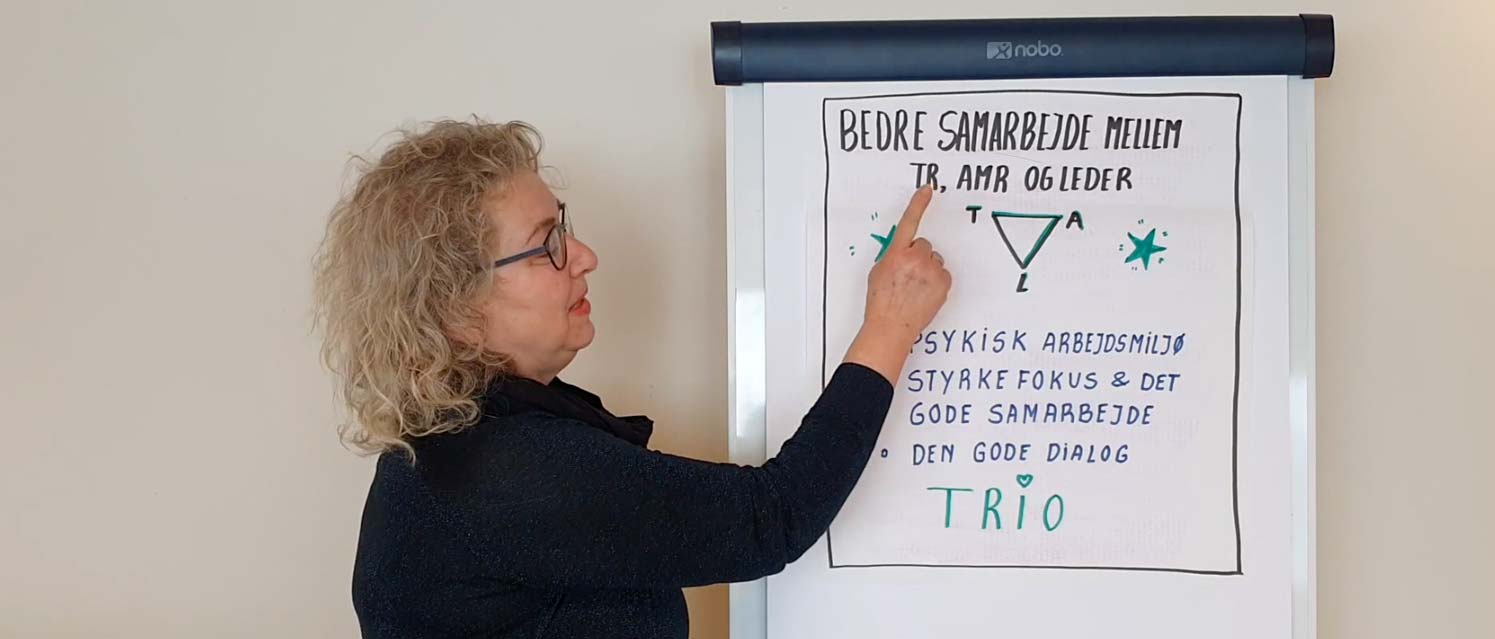 nobo
BEDRE SAMARBEJDE MELLEM
TR, AMR OG LEDER
T A
L
PSYKISK ARBEJDSMILJØ
STYRKE FOKUS & DET
GODE SAMARBEJDE
• DEN GODE DIALOG
TRIO